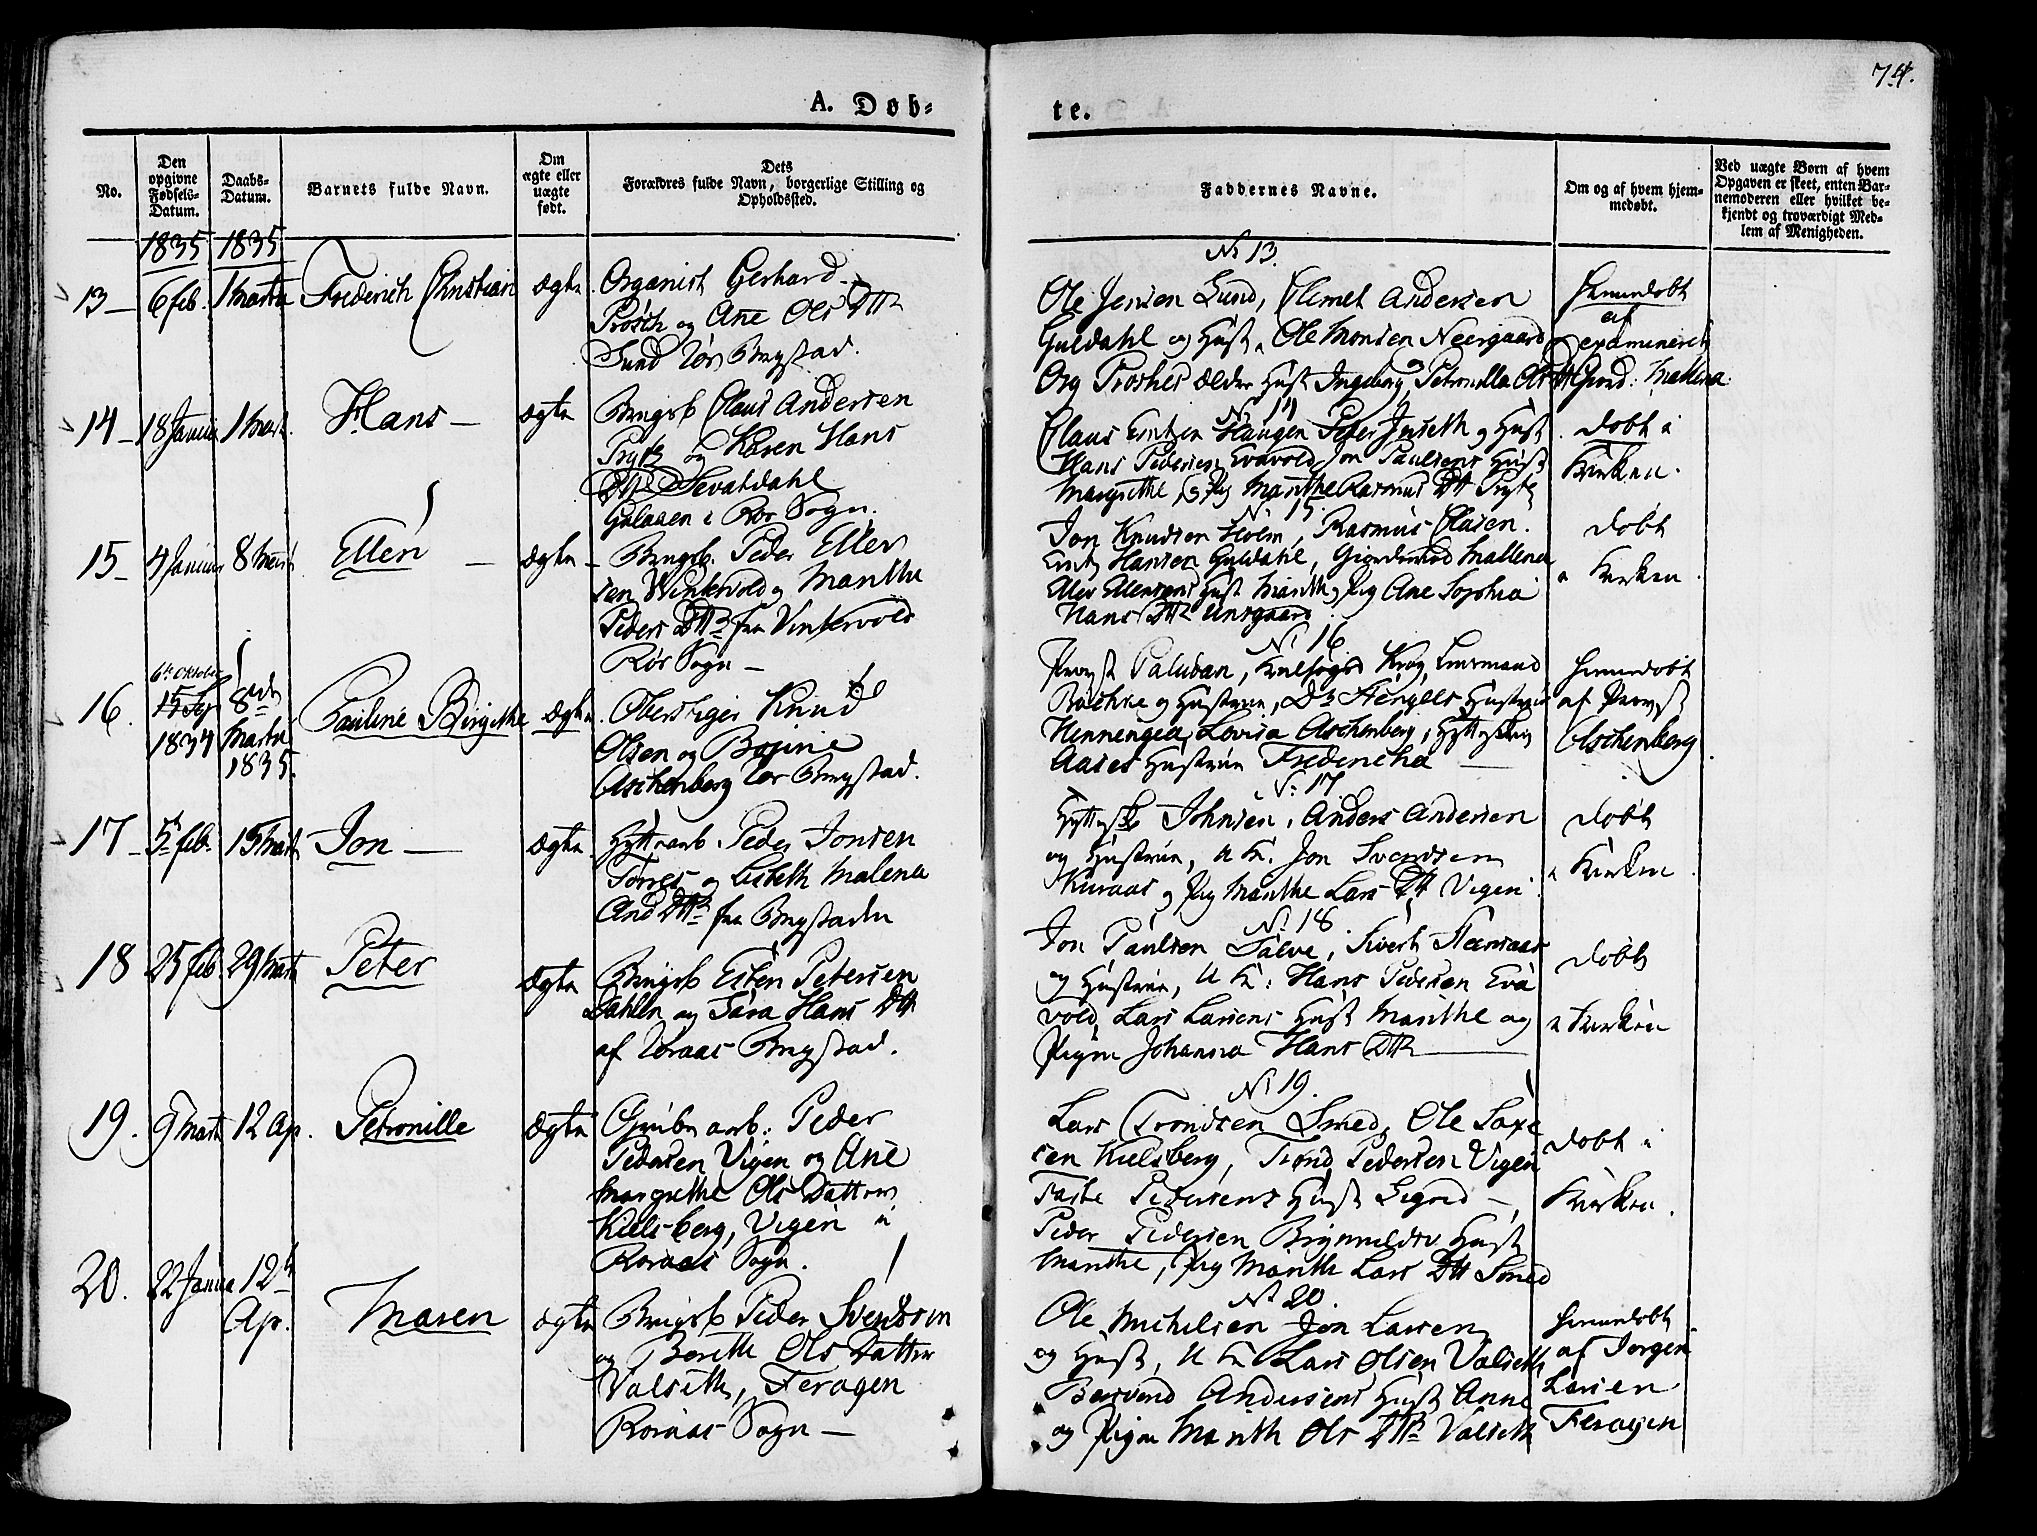 74.
A. Døb=
te.
No.
Den
opgivne
Fødsels-
Datum.
Daabs-
Datum.
Barnets fulde Navn.
Om
ægte eller
uægte
født.
Dets
Forældres fulde Navn, borgerlige Stilling og
Opholdssted.
Faddernes Navne.
Om og af hvem hjem-
medøbt.
Ved uægte Børn af hvem
Opgaven er skeet, enten Bar-
nemoderen eller hvilket be-
kjendt og troværdigt Med-
lem af Menigheden.
1835 1835
13 – 6 feb. 1 Martii Frederich Christian ægte
Organist Gerhard
Prösch og Ane Ols Dttr
Lund Bergstad.
No 13.
Ole Jensen Lund, Clemet Andersen
Guldahl og Hust., Ole Monsen Neergaard
Org Proshes ældre Hust Ingeborg, Petronilla
hiemmedøbt
af
examineret
Giord: Mallena
14 – 18 Januar 1 Mart. Hans – ægte
Bergsb Claus Andersen
Prytz og Karen Hans
Dttr Sevatdahl
Galaaen i Rør Sogn.
No 14
Claus Entzen Haugen Peter Juseth og Hust
Hans Pedersen Evavold Jon Paulsens Hust
Margrethe, og Pig Marithe Rasmus Dtt Prytz
døbt i
Kirken.
15 – 4 Januar 8 Mart Ellen – ægte –
Bergsb. Peder Eller
sen Wintervold og Marithe
Peders Dttr fra Vintervold
Rør Sogn –
No 15.
Jon Knudsen Holm, Rasmus Olasen.
Entz Hansen Guldahl, Giordemod Mallena
Eller Ellensens Hust Marith, Pig Ane Sophia
Hans Dttr Unsgaard.
døbt
i Kirken.
16. 6te Oktober
15 Sep
1834
8de
Martii
1835.
Pauline Birgithe ægte.
Oberstiger Knud
Olsen og Bojine
Aschenberg Bergstad.
No 16
Provst Paludan, Krog, Leutnand
Baschke og Hustrue, Dr Stengels Hustrue
Hennengea, Lovisa Aschenberg, Hytteskriv
Aases Hustrue Fredericha –
hiemmedøbt
af Provst
Aschenberg
17 – 5 feb. 15 Mart Jon – ægte
Hyttearb Peder Jonsen
Torres og Lisbeth Malena
And Dttr fra Bergstaden
No 17
Hyttesk Johnsen, Anders Andersen
og Hustrue, U K. Jon Svendsen
Kuraas og Pig Marithe Lars Dtt Vigen.
døbt
i Kirken.
18 25 feb 29 Mart Peter ægte
Bergsb Esten Petersen
Dahlen og Sara Hans Dtt
af Røraas Bergstad.
No 18
Jon Paulsen Salve, Sivert Stensaas
og Hustrue, U K: Hans Pedersen Eva
vold, Lars Larsens Hust Marithe og
Pigen Johanna Hans Dttr
døbt
i Kirken
19. 9 Mart 12 Ap. Petronille ægte
Grube arb: Peder
Pedersen Vigen og Ane
Margrethe Ols Datter
Kielsberg, Vigen i
Roraas Sogn.
No 19.
Lars Trondsen Smed, Ole Saxe
sen Kielsberg, Trond Pedersen Vigen
Taste Pedersens Hust Sigred –,
Peder Pedersen Hust
Marithe, Pig Marith Lars Dtt Smed
døbt i
Kirken.
20. 22 Janua 12te
Ap.
Maren ægte
Bergsb Peder Svendsen
og Berith Ols Datter
Valseth, Feragen
Roraas Sogn –
No 20.
Ole Michelsen Jon Larsen
og Hust, U K Lars Olsen Valseth
Andersens Hust Anne
og Pigen Marith Ols Dttr Valseth
hiemmedøbt
af Jorgen
Larsen
Feragen